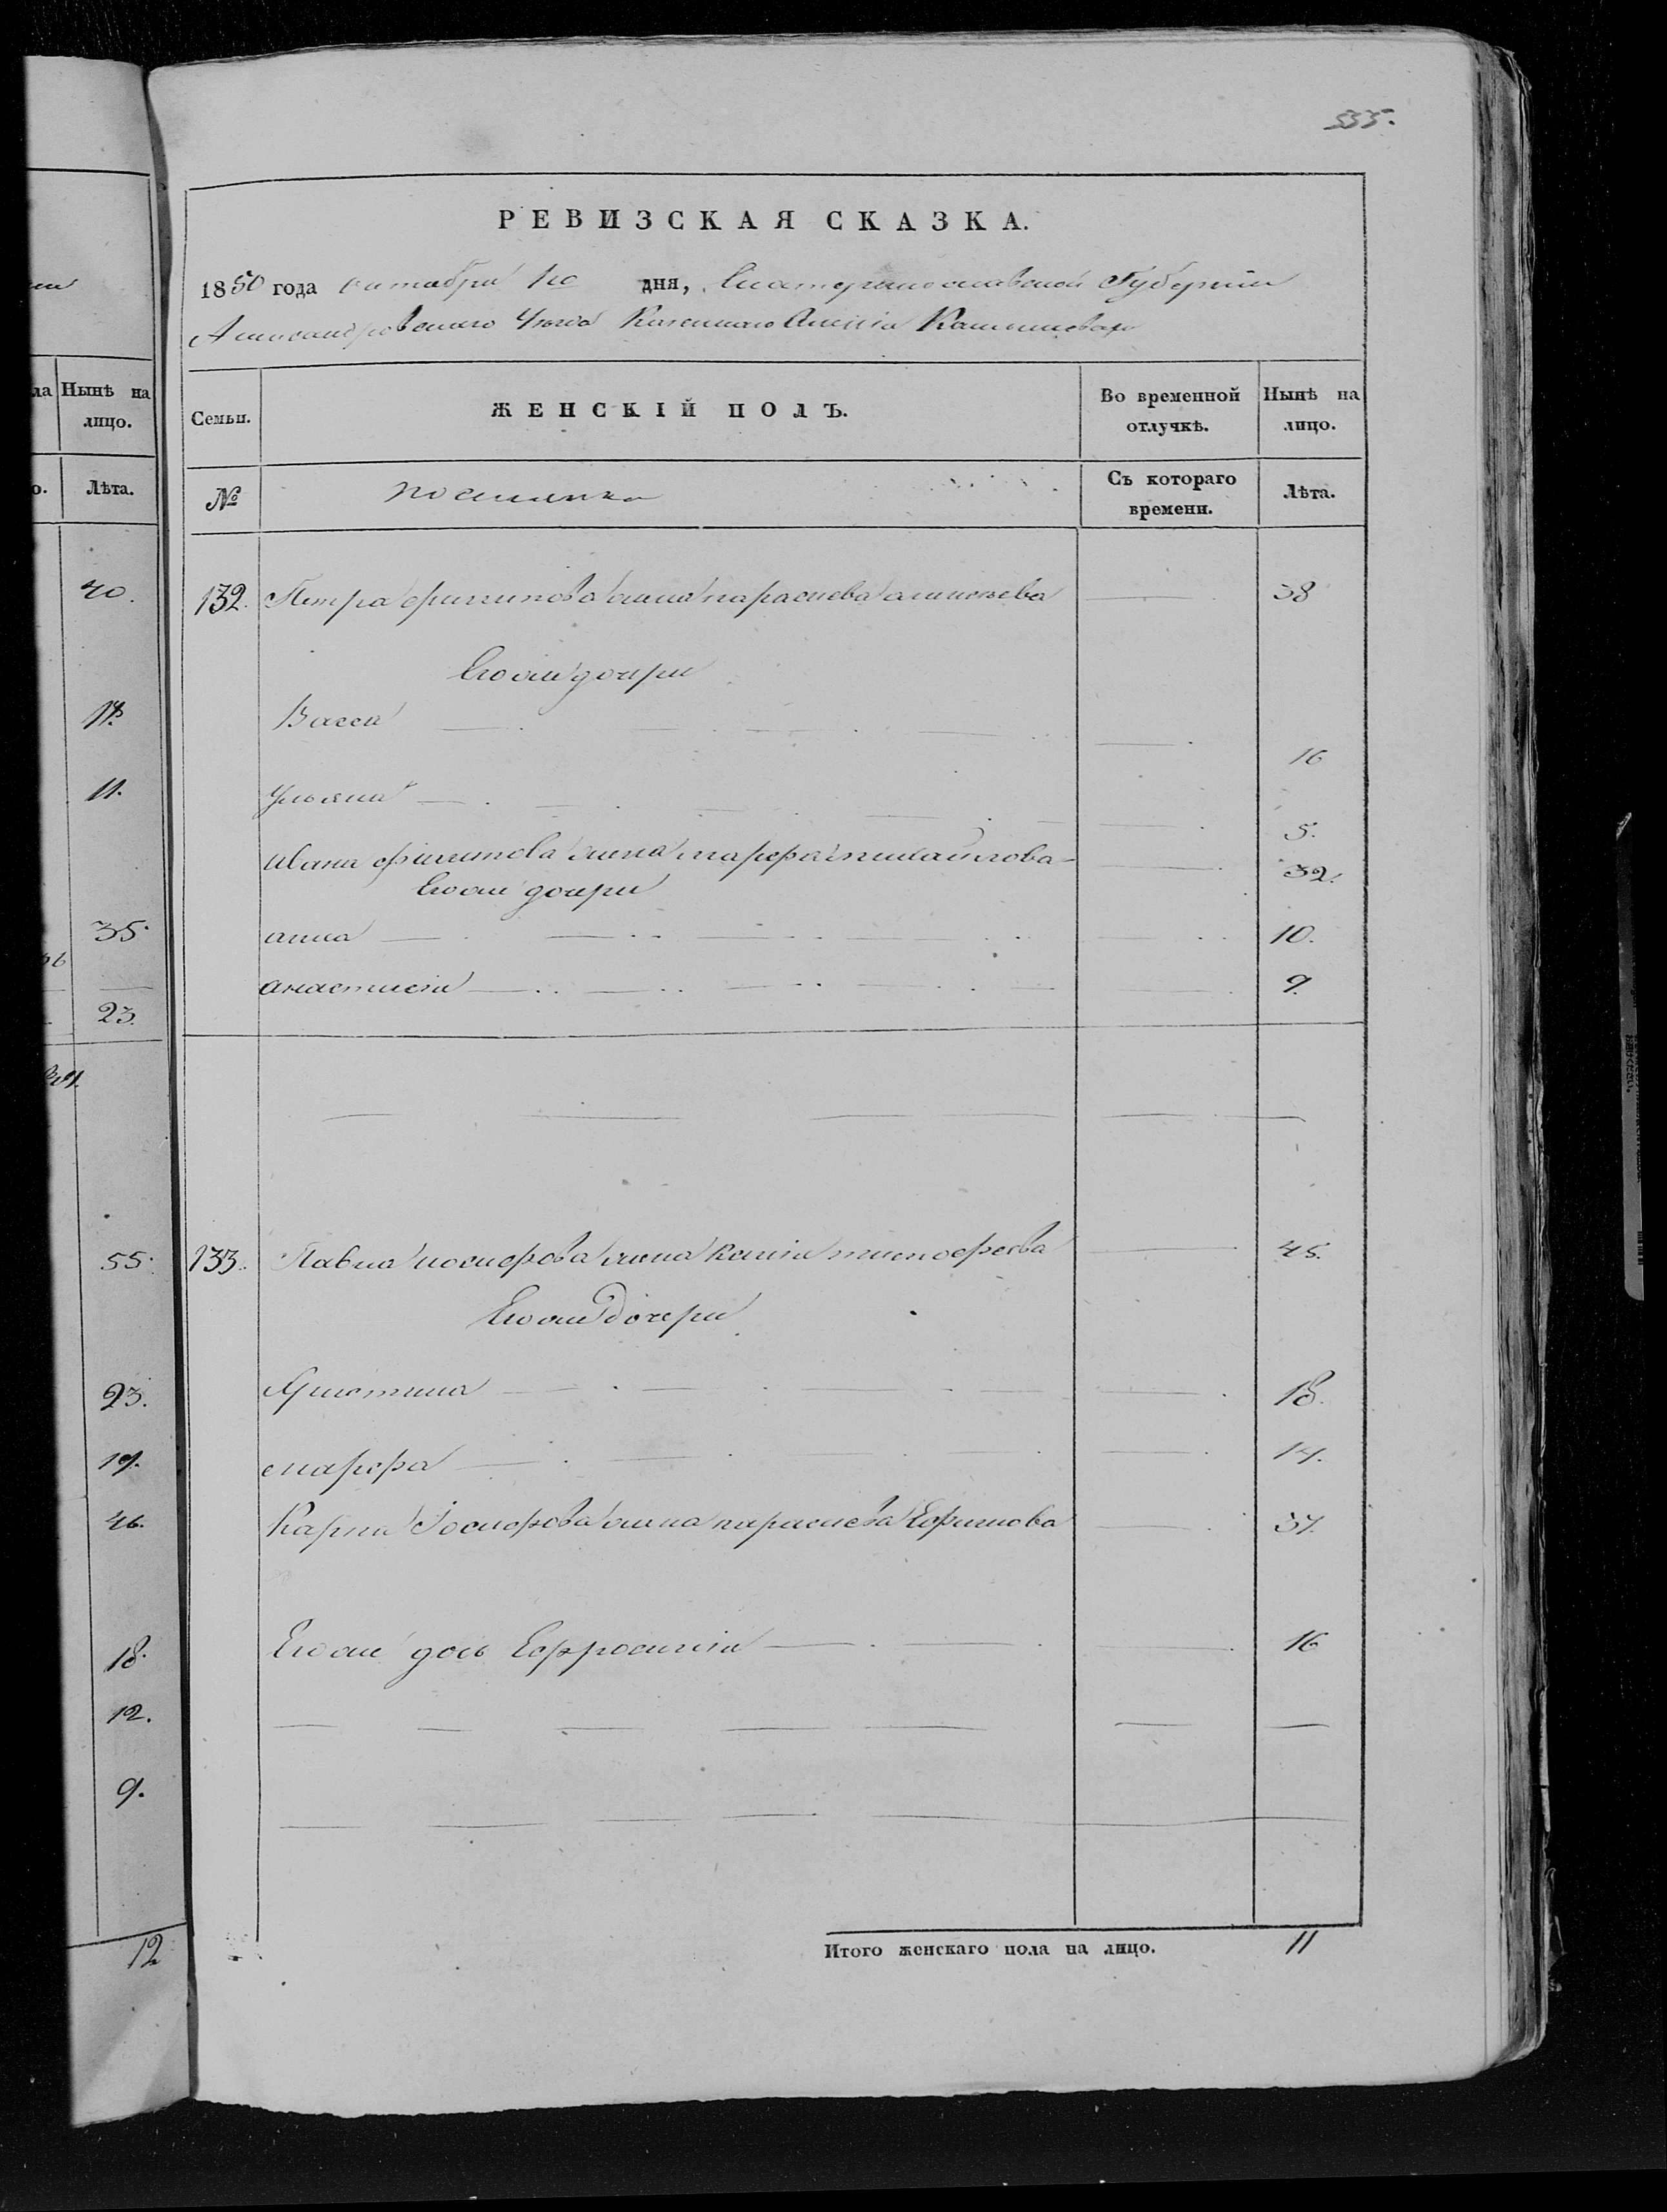 535.
РЕВИЗСКАЯ СКАЗКА.
1850 года октября 10 дня, Екатеринославской Губернии
Александровского Уезда Казенного Селения
ла Нынѣ на лицо.
Семьи. ЖЕНСКІЙ ПОЛЪ. Во временной отлучкѣ. Нынѣ на лицо.
о. Лѣта.
№ Съ котораго времени. Лѣта.
40.
132. Петра жена параскева алексеева 38
Его же дочери
Васса 16
11.
Ульяна 5.
Ивана филипова жена марфа михайлова 32.
Его же дочери
35.
анна 10.
анастасия 9.
23.
55.
133. Павла иосифова жена тимофеева 45.
Его же дочери
23.
Христина 18.
19.
марфа 14.
46.
Карпа Иосифова жена параскева Ефимова 37.
18.
Его же дочь Ефросиния 16
12.
9.
12
Итого женскаго пола на лицо. 11